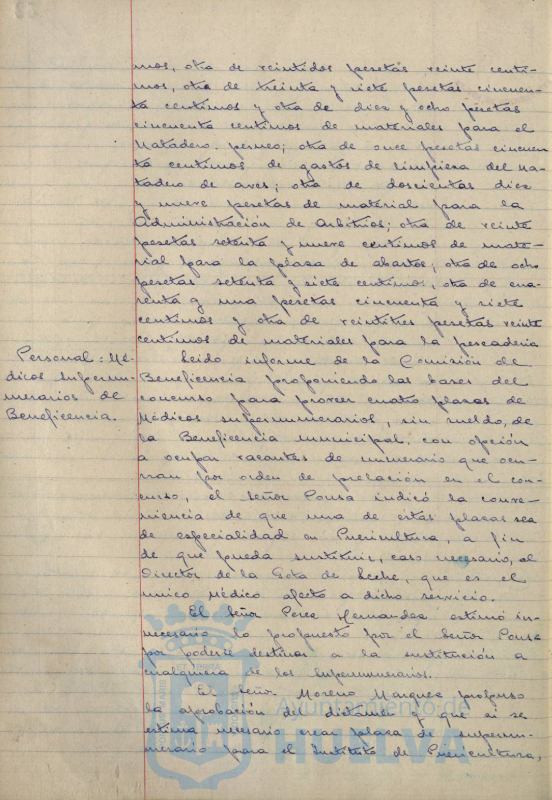 mos, otra de veintidos pesetas veinte centi-
mos, otra de treinta y siete pesetas cincuen-
ta centimos y otra de diez y ocho pesetas
cincuenta centimos de materiales para el
Matadero. perneo; otra de once pesetas cincuen
ta centimos de gastos de limpieza del Ma-
tadero de aves; otra de doscientas diez
y nueve pesetas de material para la
Administración de Arbitrios; otra de veinte
pesetas setenta y nueve centimos de mate-
rial para la plaza de abastos, otra de ocho
pesetas setenta y siete centimos, otra de cua-
renta y una pesetas cincuenta y siete
centimos y otra de veintitres pesetas veinte
centimos de materiales para la pescaderia
Personal: Mé-
dicos supernu-
merarios de
Beneficencia.
Leido informe de la Comisión de
Beneficencia proponiendo las bases del
concurso para proveer cuatro plazas de
Médicos supernumerarios, sin sueldo, de
la Beneficencia municipal, con opción
a ocupar vacantes de numerario que ocu-
rran por orden de prelación en el con-
curso, el Señor Pousa indicó la conve-
niencia de que una de estas plazas sea
de especialidad en Puericultura, a fin
de que pueda sustituir, caso necesario, al
Director de la Gota de Leche, que es el
unico Médico afecto a dicho servicio.
El Señor Perez Hernandez estimó in-
necesario lo propuesto por el Señor Pousa
por poderse destinar a la institución a
cualquiera de los supernumerarios.
El Señor Moreno Marquez propuso
la aprobación del dictamen y que si se
estima necesario crear plaza de supernu-
merario para el Instituto de Puericultura,
Ayuntamiento de
HUELVA